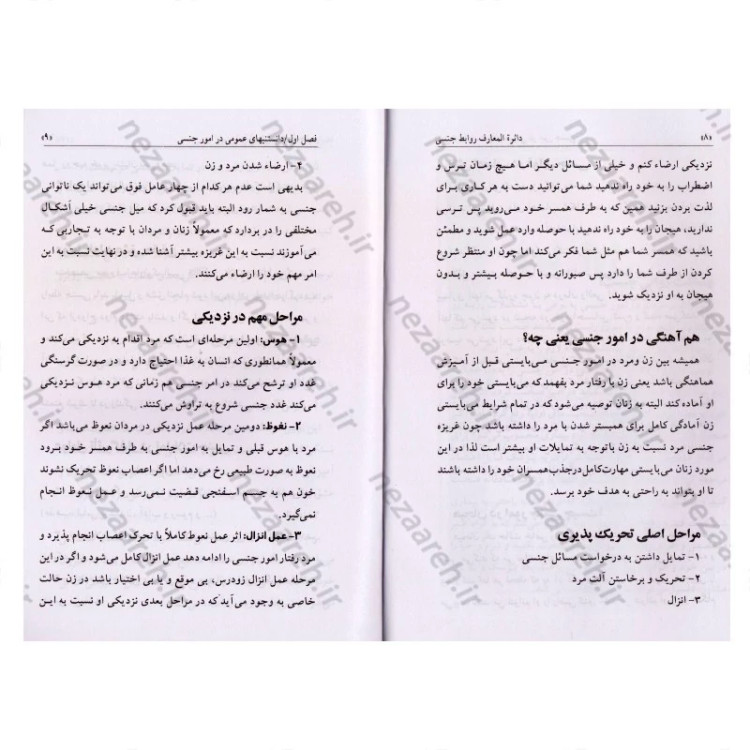 «۸» دائرة المعارف روابط جنسی
نزدیکی ارضاء کنم و خیلی از مسائل دیگر اما هیچ زمان ترس و
اضطراب را به خود راه ندهید شما می‌توانید دست به هر کاری برای
لذت بردن بزنید همین که به طرف همسر خود می‌روید پس ترسی
ندارید، هیجان را به خود راه ندهید با حوصله وارد عمل شوید و مطمئن
باشید که همسر شما هم مثل شما فکر می‌کند اما چون او منتظر شروع
کردن از طرف شما را دارد پس صبورانه و با حوصله بیشتر و بدون
هیجان به او نزدیک شوید.
هم آهنگی در امور جنسی یعنی چه؟
همیشه بین زن ومرد در امور جنسی می‌بایستی قبل از آمیزش
هماهنگی باشد یعنی زن با رفتار مرد بفهمد که می‌بایستی خود را برای
او آماده کند البته به زنان توصیه می‌شود که در تمام شرایط می‌بایستی
زن آمادگی کامل برای همبستر شدن با مرد را داشته باشد چون غریزه
جنسی مرد نسبت به زن باتوجه به تمایلات او بیشتر است لذا در این
مورد زنان می‌بایستی مهارت‌کامل درجذب همسران خود را داشته باشند
تا او بتواند به راحتی به هدف خود برسد.
مراحل اصلی تحریک پذیری
۱- تمایل داشتن به درخواست مسائل جنسی
۲- تحریک و برخاستن آلت مرد
۳- انزال
فصل اول/دانستنیهای عمومی در امور جنسی «۹»
۴- ارضاء شدن مرد و زن
بدیهی است عدم هر کدام از چهار عامل فوق می‌تواند یک ناتوانی
جنسی به شمار رود البته باید قبول کرد که میل جنسی خیلی أشکال
مختلفی را در بردارد که معمولاً زنان و مردان با توجه به تجاربی که
می‌آموزند نسبت به این غریزه بیشتر آشنا شده و در نهایت نسبت به این
امر مهم خود را ارضاء می‌کنند.
مراحل مهم در نزدیکی
۱- هوس: اولین مرحله‌ای است که مرد اقدام به نزدیکی می‌کند و
معمولاً همانطوری که انسان به غذا احتیاج دارد و در صورت گرسنگی
غدد او ترشح می‌کند در امر جنسی هم زمانی که مرد هوس نزدیکی
می‌کند غدد جنسی شروع به تراوش می‌کنند.
۲- نغوظ: دومین مرحله عمل نزدیکی در مردان نعوظ می‌باشد اگر
مرد با هوس قبلی و تمایل به امور جنسی به طرف همسر خود برود
نعوظ به صورت طبیعی رخ می‌دهد اما اگر اعصاب نعوظ تحریک نشوند
خون هم به جسم اسفنجی قضیت نمی‌رسد و عمل نعوظ انجام
نمی‌گیرد.
۳- عمل انزال: اثر عمل نعوظ کاملاً با تحرک اعصاب انجام پذیرد و
مرد رفتار امور جنسی را ادامه دهد عمل انزال کامل می‌شود و اگر در این
مرحله عمل انزال زودرس، بی موقع و یا بی اختیار باشد در زن حالت
خاصی به وجود می‌آید که در مراحل بعدی نزدیکی او نسبت به این
nezaareh.ir